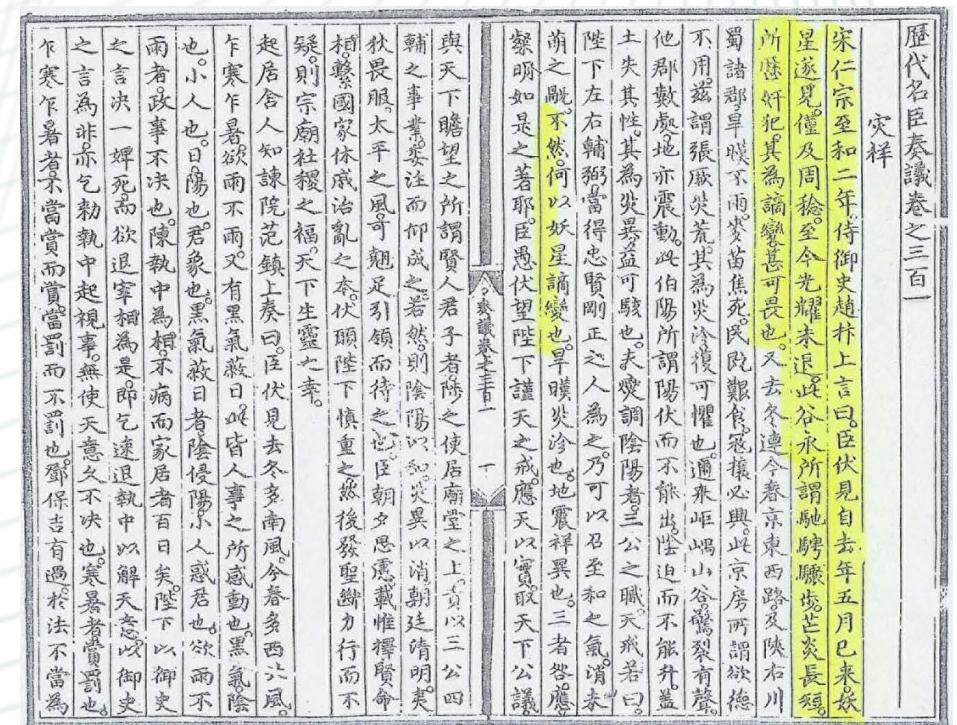 歷代名臣奏議卷之三百一
灾祥
宋仁宗至和二年。侍御史趙抃上言曰。臣伏見自去年五月已来。妖
星遂見。僅及周稔。至今光耀未退。此谷永所謂馳騁驟步。芒炎長短。
所歷奸犯。其為謫變甚可畏也。又去冬連今春。京東西路。及陝右川
蜀諸郡。旱暵不雨。麥苗焦死。民既艱食。寇攘必興。此京房所謂欲德
不用。茲謂張。厥災荒。其為災沴。復可懼也。邇来岠嵎山谷。驚裂有聲。
他郡數處。地亦震動。此伯陽所謂陽伏而不能出。陰迫而不能升。蓋
土失其性。其為災異。益可駭也。夫燮調陰陽者。三公之職。天戒若曰。
陛下左右輔弼。當得忠賢剛正之人為之。乃可以召至和之氣。消未
萌之眚。不然。何以妖星謫變也。旱暵災沴也。地震祥異也。三者咎應。
粲明如是之著耶。臣愚伏望陛下謹天之戒。應天以實。取天下公議
奏議卷之三百一 一
與天下瞻望之所謂賢人君子者。陟之使居廟堂之上。責以三公四
輔之事業。委注而仰成之。若然。則陰陽以和。災異以消。朝廷清明。夷
狄畏服。太平之風。可翹足引領而待之也。臣朝夕思慮。載惟擇賢命
相。繫國家休戚治亂之本。伏願陛下慎重之。然後發聖斷力行而不
疑。則宗廟社稷之福。天下生靈之幸。
起居舍人知諫院范鎮上奏曰。臣伏見去冬多南風。今春多西北風。
乍寒乍暑。欲雨不雨。又有黑氣蔽日。此皆人事之所感動也。黑氣陰
也。小人也。日。陽也。君象也。黑氣蔽日者。陰侵陽。小人惑君也。欲雨不
雨者。政事不决也。陳執中為相。不病而家居者百日矣。陛下以御史
之言决一婢死而欲退宰相為是。即乞速退執中以解天意。以御史
之言為非。亦乞勑執中起視事。無使天意久不决也。寒暑者賞罰也。
乍寒乍暑者。不當賞而賞。當罰而不罰也。鄧保吉有過。於法不當為